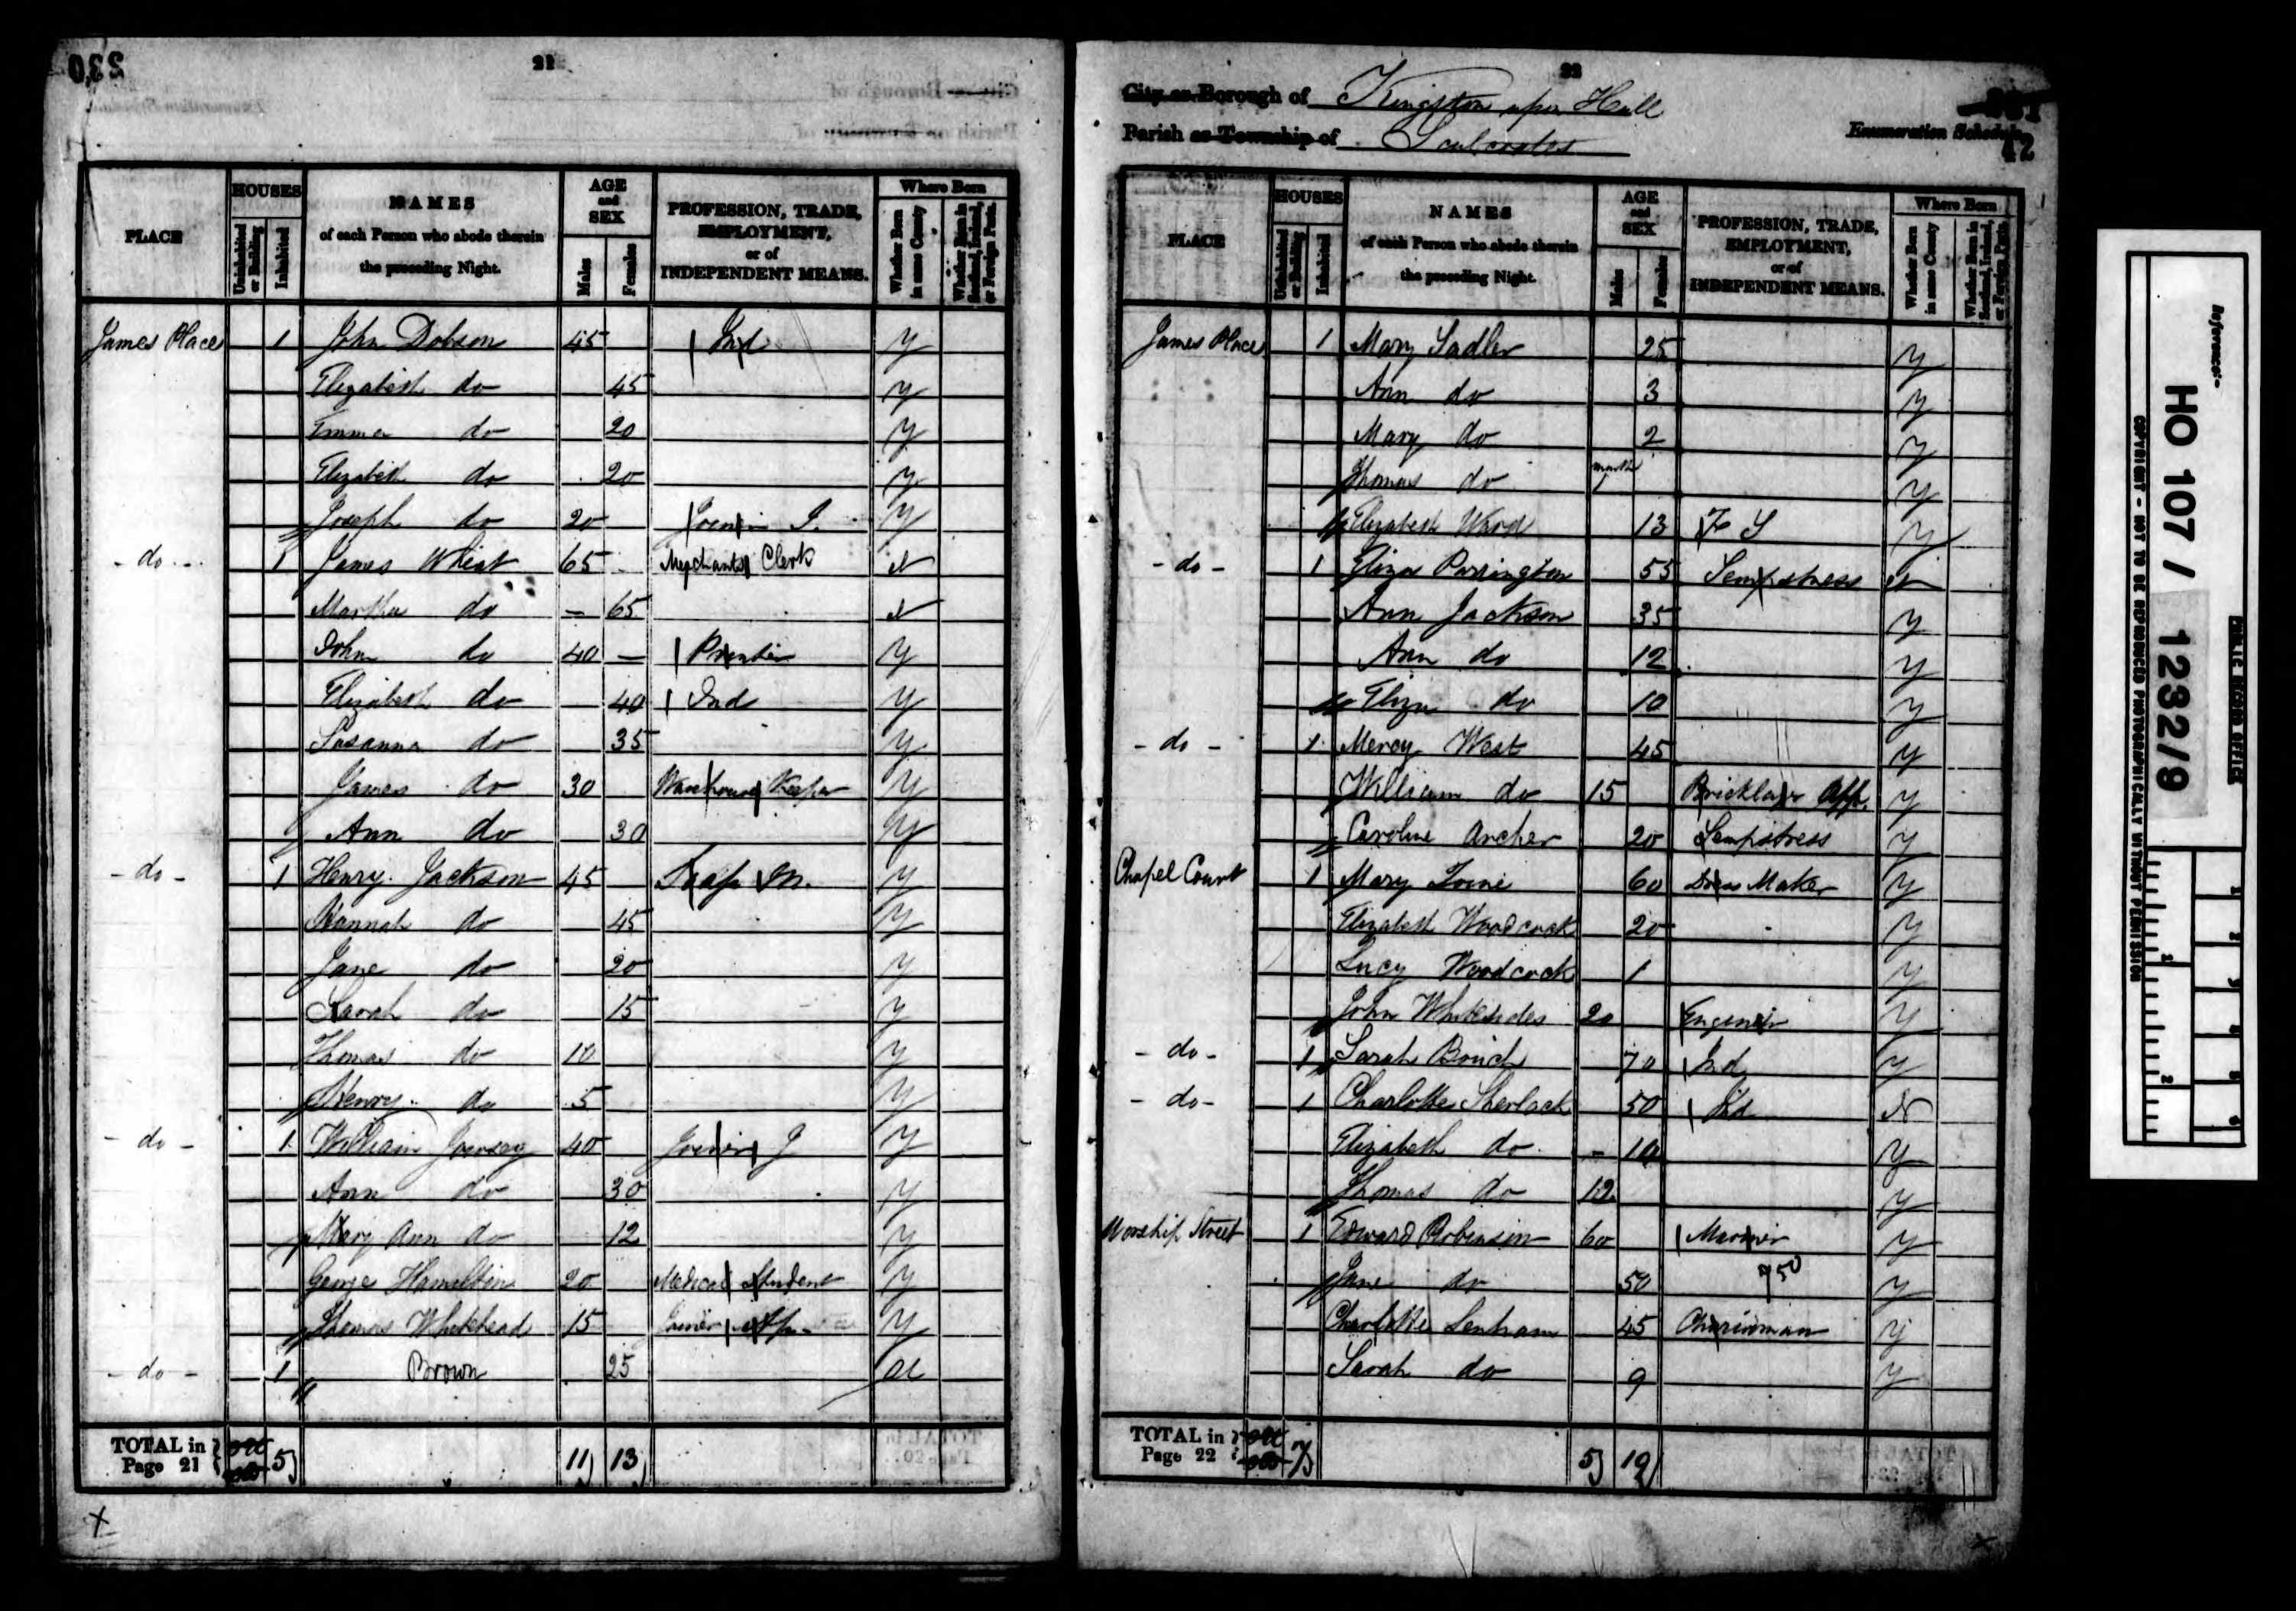 230
21
HOUSES
AGE and SEX
Where Born
PLACE
Uninhabited or Building
Inhabited
NAMES of each Person who abode therein the preceding Night.
Males
Females
PROFESSION, TRADE, EMPLOYMENT, or of INDEPENDENT MEANS.
Whether Born in same County
Whether Born in Scotland, Ireland, or Foreign Parts.
James Place 1 John Dobson 45 Ind y
Elizabeth do 45 y
Emma do 20 y
Elizabeth do 20 y
Joseph do 20 J. y
do 1 James Wheat 65 Merchants Clerk N
Martha do 65 N
John do 40 Printer y
Elizabeth do 40 Ind y
Susanna do 35 y
James do 30 Warehouse Keeper y
Ann do 30 y
do 1 Henry Jackson 45 y
Hannah do 45 y
Jane do 20 y
Sarah do 15 y
Thomas do 10 y
Henry do 5 y
do 1 William 40 Joiner J y
Ann do 30 y
Mary Ann do 12 y
George Hamilton 20 Medical Student y
Thomas Whitehead 15 Joiner App y
do 1 Brown 25
TOTAL in Page 21 5 11 13
22
City or Borough of Kingston upon Hull
Parish or Township of Sculcoates
Enumeration Schedule
42
HOUSES
AGE and SEX
Where Born
PLACE
Uninhabited or Building
Inhabited
NAMES of each Person who abode therein the preceding Night.
Males
Females
PROFESSION, TRADE, EMPLOYMENT, or of INDEPENDENT MEANS.
Whether Born in same County
Whether Born in Scotland, Ireland, or Foreign Parts.
James Place 1 Mary Sadler 25 y
Ann do 3 y
Mary do 2 y
Thomas do month 1 y
Elizabeth Ward 13 F S y
do 1 Eliza Parrington 55 Sempstress N
Ann Jackson 35 y
Ann do 12 y
Eliza do 10 y
do 1 Mercy West 45 y
William do 15 Bricklayer App. y
Caroline Archer 20 Sempstress y
Chapel Court 1 Mary 60 Dress Maker y
Elizabeth Woodcock 20 y
Lucy Woodcock 1 y
John Whitesides 20 Engineer y
do 1 Sarah 70 Ind y
do 1 Charlotte Sherlock 50 Ind N
Elizabeth do 10 y
Thomas do 12 y
Worship Street 1 Edward Robinson 60 Mariner y
Jane do 50 y
Charlotte Lenham 45 y
Sarah do 9 y
TOTAL in Page 22 7 5 19
Reference:-
HO 107 / 1232/9
PUBLIC RECORD OFFICE
COPYRIGHT - NOT TO BE REPRODUCED PHOTOGRAPHICALLY WITHOUT PERMISSION